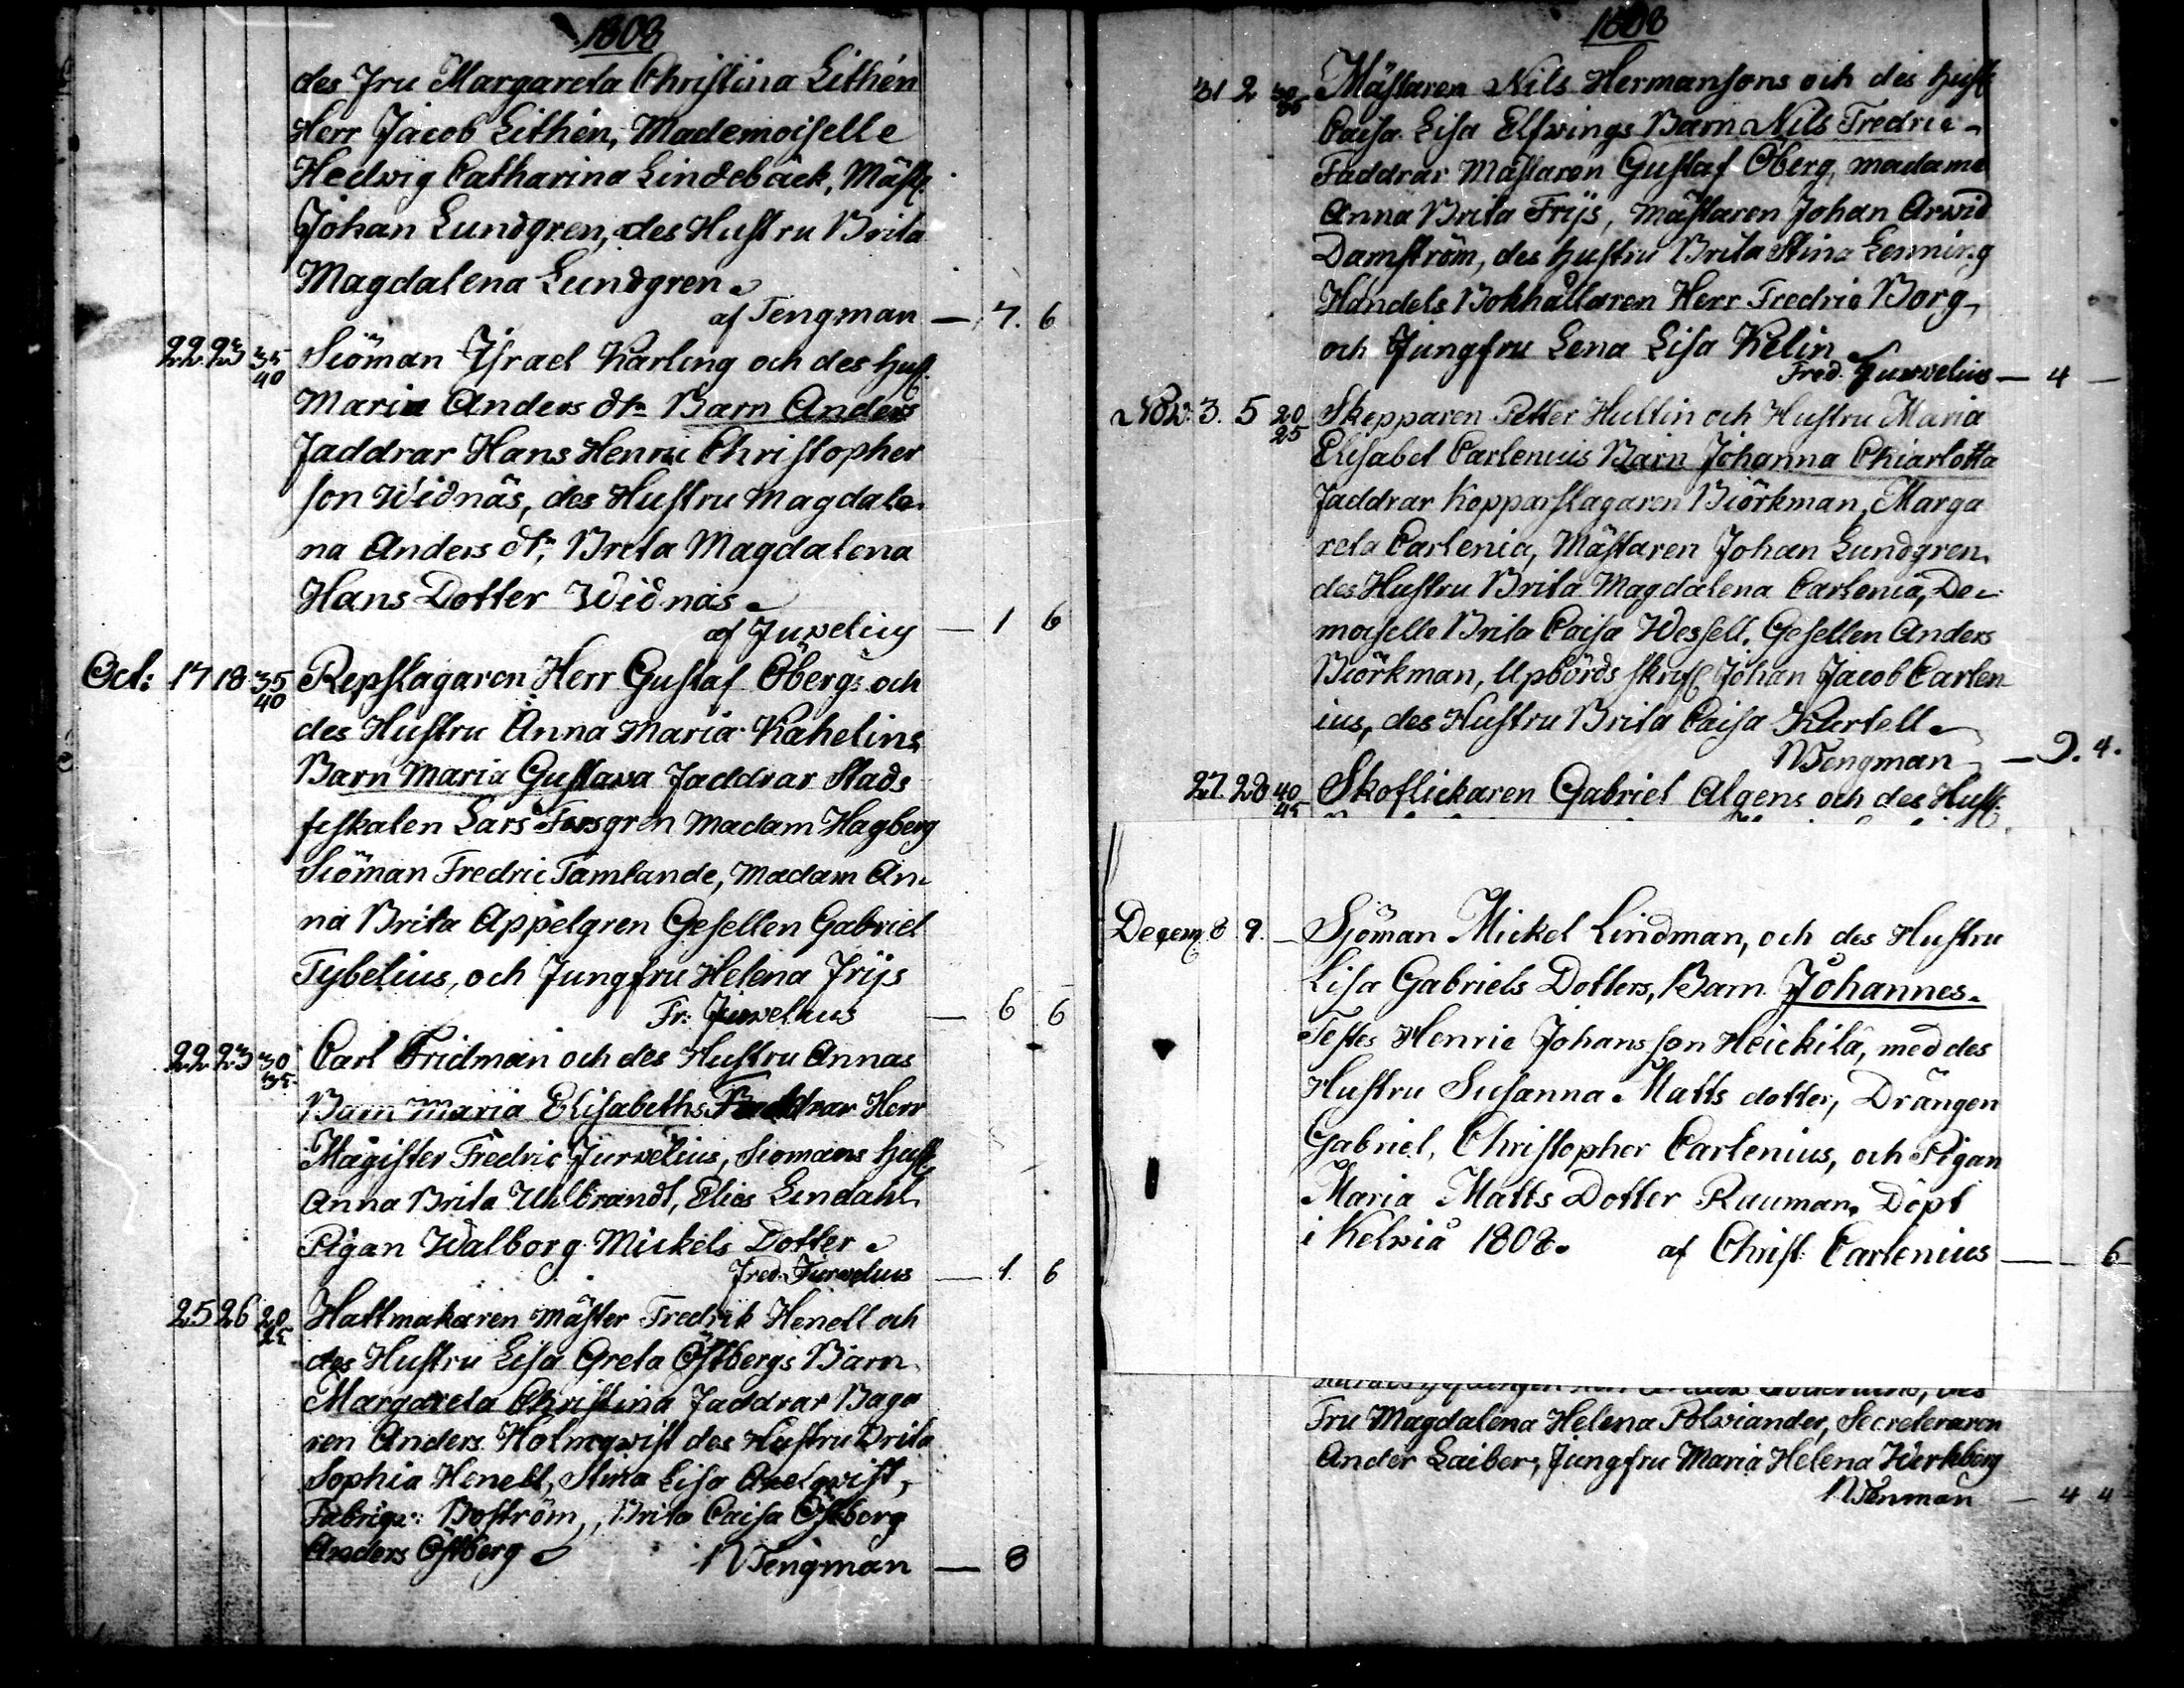 1808
des Fru Margareta Christina Lithén
Herr Jacob Lithén, Mademoiselle
Hedwig Catharina Lindebäck, Mäst:
Johan Lundgren, des Hustru Brita
Magdalena Lundgren.
af Tengman — 7. 6
22 23 35 40 Siöman Israel Karling och des hust.
Maria Anders dr. Barn Anders
Faddrar Hans Henric Christopher
son Widnäs, des Hustru Magdale
na Anders dr, Brita Magdalena
Hans Dotter Widnäs.
af Juvelius — 1 6
Oct: 17 18 35 40 Repslagaren Herr Gustaf Öbergs och
des Hustru Anna Maria Kahelins
Barn Maria Gustava Faddrar Stads
fiskalen Lars Forsgren Madam Hagberg
Siöman Fredric Tamlande, Madam An
na Brita Appelgren Gesellen Gabriel
Tybelius, och Jungfru Helena Frijs
Fr: Juvelius — 6 6
22 23 30 35 Carl Fridman och des Hustru Annas
Barn Maria Elisabeths Faddrar Herr
Magister Fredric Jurvelius, Siomans hust
Anna Brita Uhlbrandt, Elias Lindahl
Pigan Walborg Mickels Dotter.
Fred. Jurvelius — 1. 6
25 26 20 25 Hattmakaren Mäster Fredrik Henell och
des Hustru Lisa Greta Östbergs Barn
Margareta Christina Faddrar Baga
ren Anders Holmqwist des Hustru Brita
Sophia Henell, Stina Lisa Axelqwist,
Fabriqu: Boström, Brita Caisa Östberg
Anders Östberg N Tengman — 8
1808
31 2 30 35 Mästaren Nils Hermansons och des hust
Caisa Lisa Elfwings Barn Nils Fredric
Faddrar Mästaren Gustaf Öberg, madame
Anna Brita Frijs, Mästaren Johan Arwid
Damström, des hustru Brita Stina Lenning
Handels Bokhållaren Herr Fredric Borg
och Jungfru Lena Lisa Kelin
Fred. Jurvelius — 4 —
Nov: 3. 5 20 25 Skepparen Petter Hultin och Hustru Maria
Elisabet Carlenius Barn Johanna Chiarlotta
Faddrar Kopparslagaren Biörkman, Marga
reta Carlenia, Mästaren Johan Lundgren
des Hustru Brita Magdalena Carlenia, De
moiselle Brita Caisa Wessell, Gesellen Anders
Biörkman, Upbörds skrif Johan Jacob Carlen
ius, des Hustru Brita Caisa Kartell
N Tengman — 9. 4.
27 28 40 45 Skoflickaren Gabriel Algens och des Hust
Decem. 8 9. — Sjöman Mickel Lindman, och des Hustru
Lisa Gabriels Dotters, Barn Johannes.
Testes Henric Johansson Heickilä, med des
Hustru Susanna Matts dotter, Drängen
Gabriel, Christopher Carlenius, och Pigan
Maria Matts Dotter Rauman. Döpt
i Kelviå 1808. af Christ: Carlenius — 6
Fru Magdalena Helena Polviander, Secreteraren
Ander Laiber, Jungfru Maria Helena Werkberg
N Tenman — 4 4